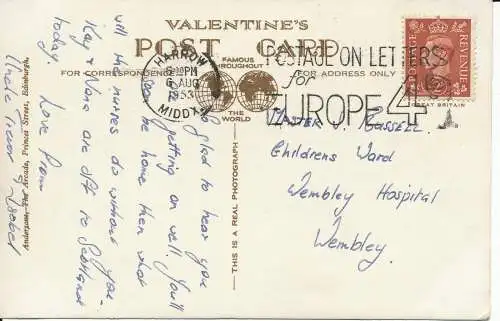 VALENTINE'S
POST CARD
FAMOUS
THROUGHOUT
THE WORLD
FOR CORRESPONDENCE
FOR ADDRESS ONLY
THIS IS A REAL PHOTOGRAPH
Anderson, The Arcade, Princes Street, Edinburgh.
HARROW
PM
6 AUG
1953
MIDDX
POSTAGE ON LETTERS
for
EUROPE 4
POSTAGE REVENUE
GREAT BRITAIN
So glad to hear you
getting on well. You'll
be home then what
will the nurses do without you.
Kay & Nana are off to Scotland
today.
Love from
Uncle Trevor & Isobel
MASTER J. RUSSELL
Childrens Ward
Wembley Hospital
Wembley.